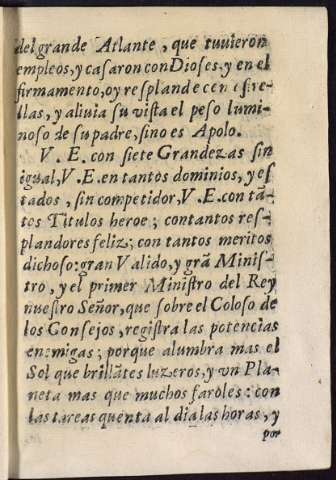 del grande Atlante, que tuuieron
empleos, y casaron con Dioses, y en el
firmamento, oy resplandecen estre-
llas, y aliuia su vista el peso lumi-
noso de su padre, sino es Apolo.
V. E. con siete Grandezas sin
igual, V. E. en tantos dominios, y es
tados, sin competidor, V. E. con tã-
tos Titulos heroe; con tantos res-
plandores feliz; con tantos meritos
dichoso: gran Valido, y grã Minis-
tro, y el primer Ministro del Rey
nuestro Señor, que sobre el Coloso de
los Consejos, registra las potencias
enemigas; porque alumbra mas el
Sol que brillãtes luzeros, y vn Pla-
neta mas que muchos faroles: con
las tareas quenta al dia las horas, y
por